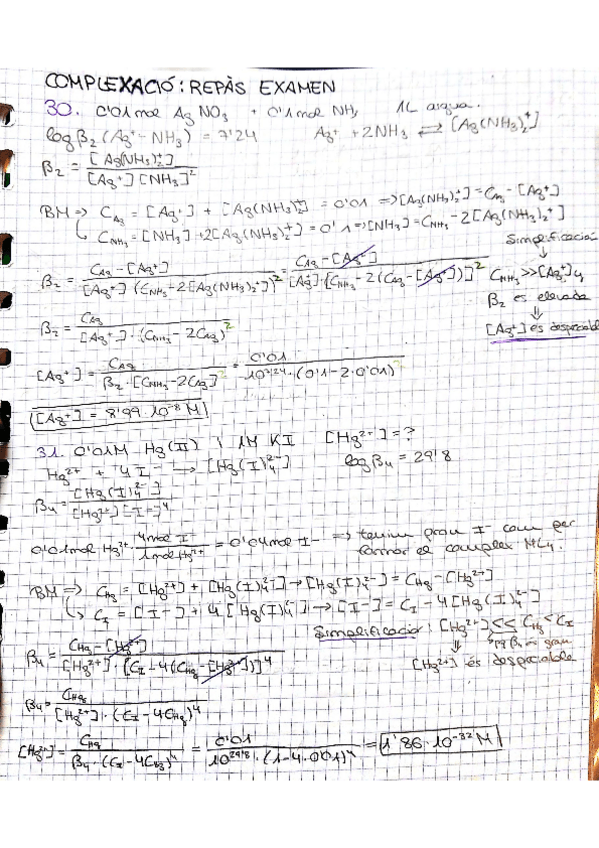 COMPLEXACIÓ: REPÀS EXAMEN
30. 0'01 mol AgNO₃ + 0'1 mol NH₃ 1L aigua.
log β₂ (Ag⁺-NH₃) = 7'24 Ag⁺ + 2NH₃ ⇄ [Ag(NH₃)₂⁺]
β₂ = [Ag(NH₃)₂⁺] / [Ag⁺][NH₃]²
BM ⇒ C_Ag = [Ag⁺] + [Ag(NH₃)₂⁺] = 0'01 ⇒ [Ag(NH₃)₂⁺] = C_Ag - [Ag⁺]
↳ C_NH₃ = [NH₃] + 2[Ag(NH₃)₂⁺] = 0'1 ⇒ [NH₃] = C_NH₃ - 2[Ag(NH₃)₂⁺]
Simplificació
⇓
β₂ = C_Ag - [Ag⁺] / [Ag⁺] (C_NH₃ - 2[Ag(NH₃)₂⁺])² = C_Ag - [Ag⁺] / [Ag⁺]·[C_NH₃ - 2(C_Ag - [Ag⁺])]² C_NH₃ >> [Ag⁺] i
β₂ és elevada
⇓
[Ag⁺] és despreciable
β₂ = C_Ag / [Ag⁺]·(C_NH₃ - 2C_Ag)²
[Ag⁺] = C_Ag / β₂·[C_NH₃ - 2C_Ag]² = 0'01 / 10^7'24·(0'1 - 2·0'01)²
[Ag⁺] = 8'99·10⁻⁸ M
31. 0'01M Hg(II) i 1M KI [Hg²⁺] = ?
Hg²⁺ + 4I⁻ → [Hg(I)₄²⁻] log β₄ = 29'8
β₄ = [Hg(I)₄²⁻] / [Hg²⁺][I⁻]⁴
0'01 mol Hg²⁺ · 4 mol I⁻ / 1 mol Hg²⁺ = 0'04 mol I⁻ ⇒ tenim prou I⁻ com per
formar el complex ML₄.
BM ⇒ C_Hg = [Hg²⁺] + [Hg(I)₄²⁻] → [Hg(I)₄²⁻] = C_Hg - [Hg²⁺]
↳ C_I = [I⁻] + 4[Hg(I)₄²⁻] → [I⁻] = C_I - 4[Hg(I)₄²⁻]
Simplificació: [Hg²⁺] << C_Hg < C_I
⇓ pq β₄ és gran
[Hg²⁺] és despreciable
β₄ = C_Hg - [Hg²⁺] / [Hg²⁺]·[C_I - 4(C_Hg - [Hg²⁺])]⁴
β₄ = C_Hg / [Hg²⁺]·(C_I - 4C_Hg)⁴
[Hg²⁺] = C_Hg / β₄·(C_I - 4C_Hg)⁴ = 0'01 / 10^29'8·(1 - 4·0'01)⁴ = 1'86·10⁻³² M